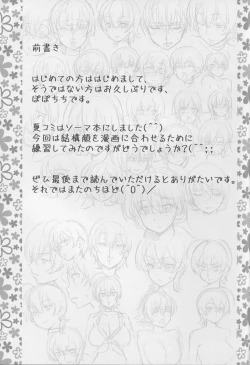 前書き
はじめての方ははじめまして、
そうではない方はお久しぶりです、
ぽぽちちです。
夏コミはソーマ本にしました(^^)
今回は結構顔を漫画に合わせるために
練習してみたのですがどうでしょうか?(^^;;
ぜひ最後まで読んでいただけるとありがたいです。
それではまたのちほど(^0^)/